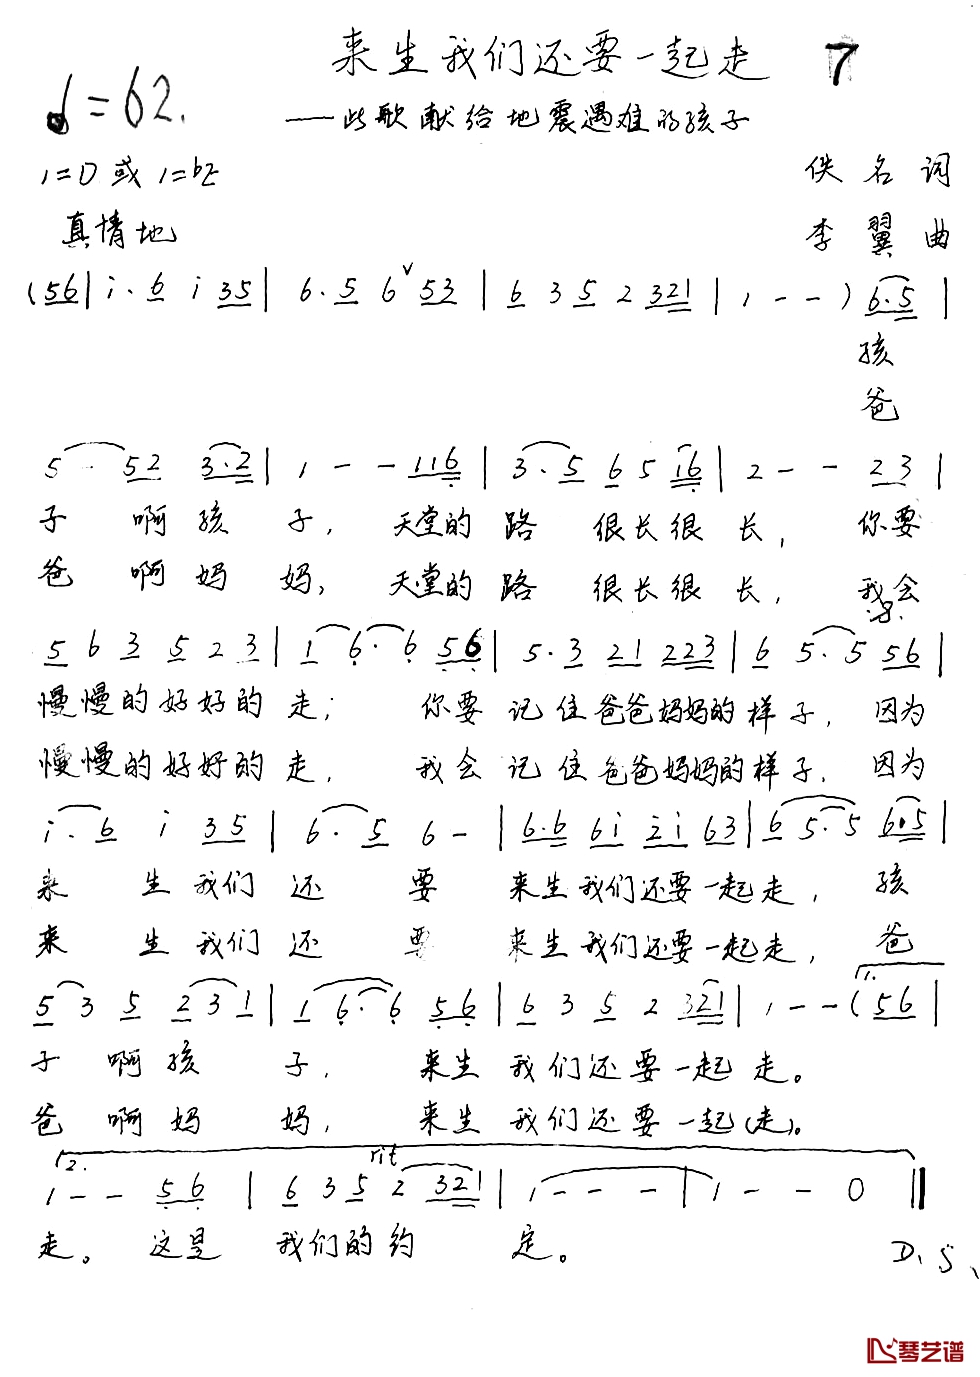 来生我们还要一起走 7
♩=62.
——此歌献给地震遇难的孩子
1=D 或 1=bE
佚名词
真情地
李翼曲
(56|i·6 i 35|6·5 6 ˅53|6 3 5 2 321|1 - - ) 6·5|
孩
爸
5 - 52 3·2|1 - - 116|3·5 6 5 16|2 - - 23|
子 啊孩 子, 天堂的路 很长很 长, 你要
爸 啊妈 妈, 天堂的路 很长很 长, 我会
5 6 3 5 2 3|1 6·6 56|5·3 21 223|6 5·5 56|
慢慢的好好的走; 你要记住爸爸妈妈的样子, 因为
慢慢的好好的走, 我会记住爸爸妈妈的样子, 因为
i·6 i 35|6·5 6 -|6·6 6i 2i 63|6 5·5 6·5|
来 生我们 还 要 来生我们还要一起走, 孩
来 生我们 还 要 来生我们还要一起走, 爸
1.
5 3 5 2 3 1|1 6·6 56|6 3 5 2 321|1 - - (56|
子 啊孩 子, 来生 我们还要一起 走。
爸 啊妈 妈, 来生 我们还要一起(走)。
2. rit
1 - - 56|6 3 5 2 321|1 - - -|1 - - 0‖
走。 这是 我们的约 定。
D.S.
琴艺谱